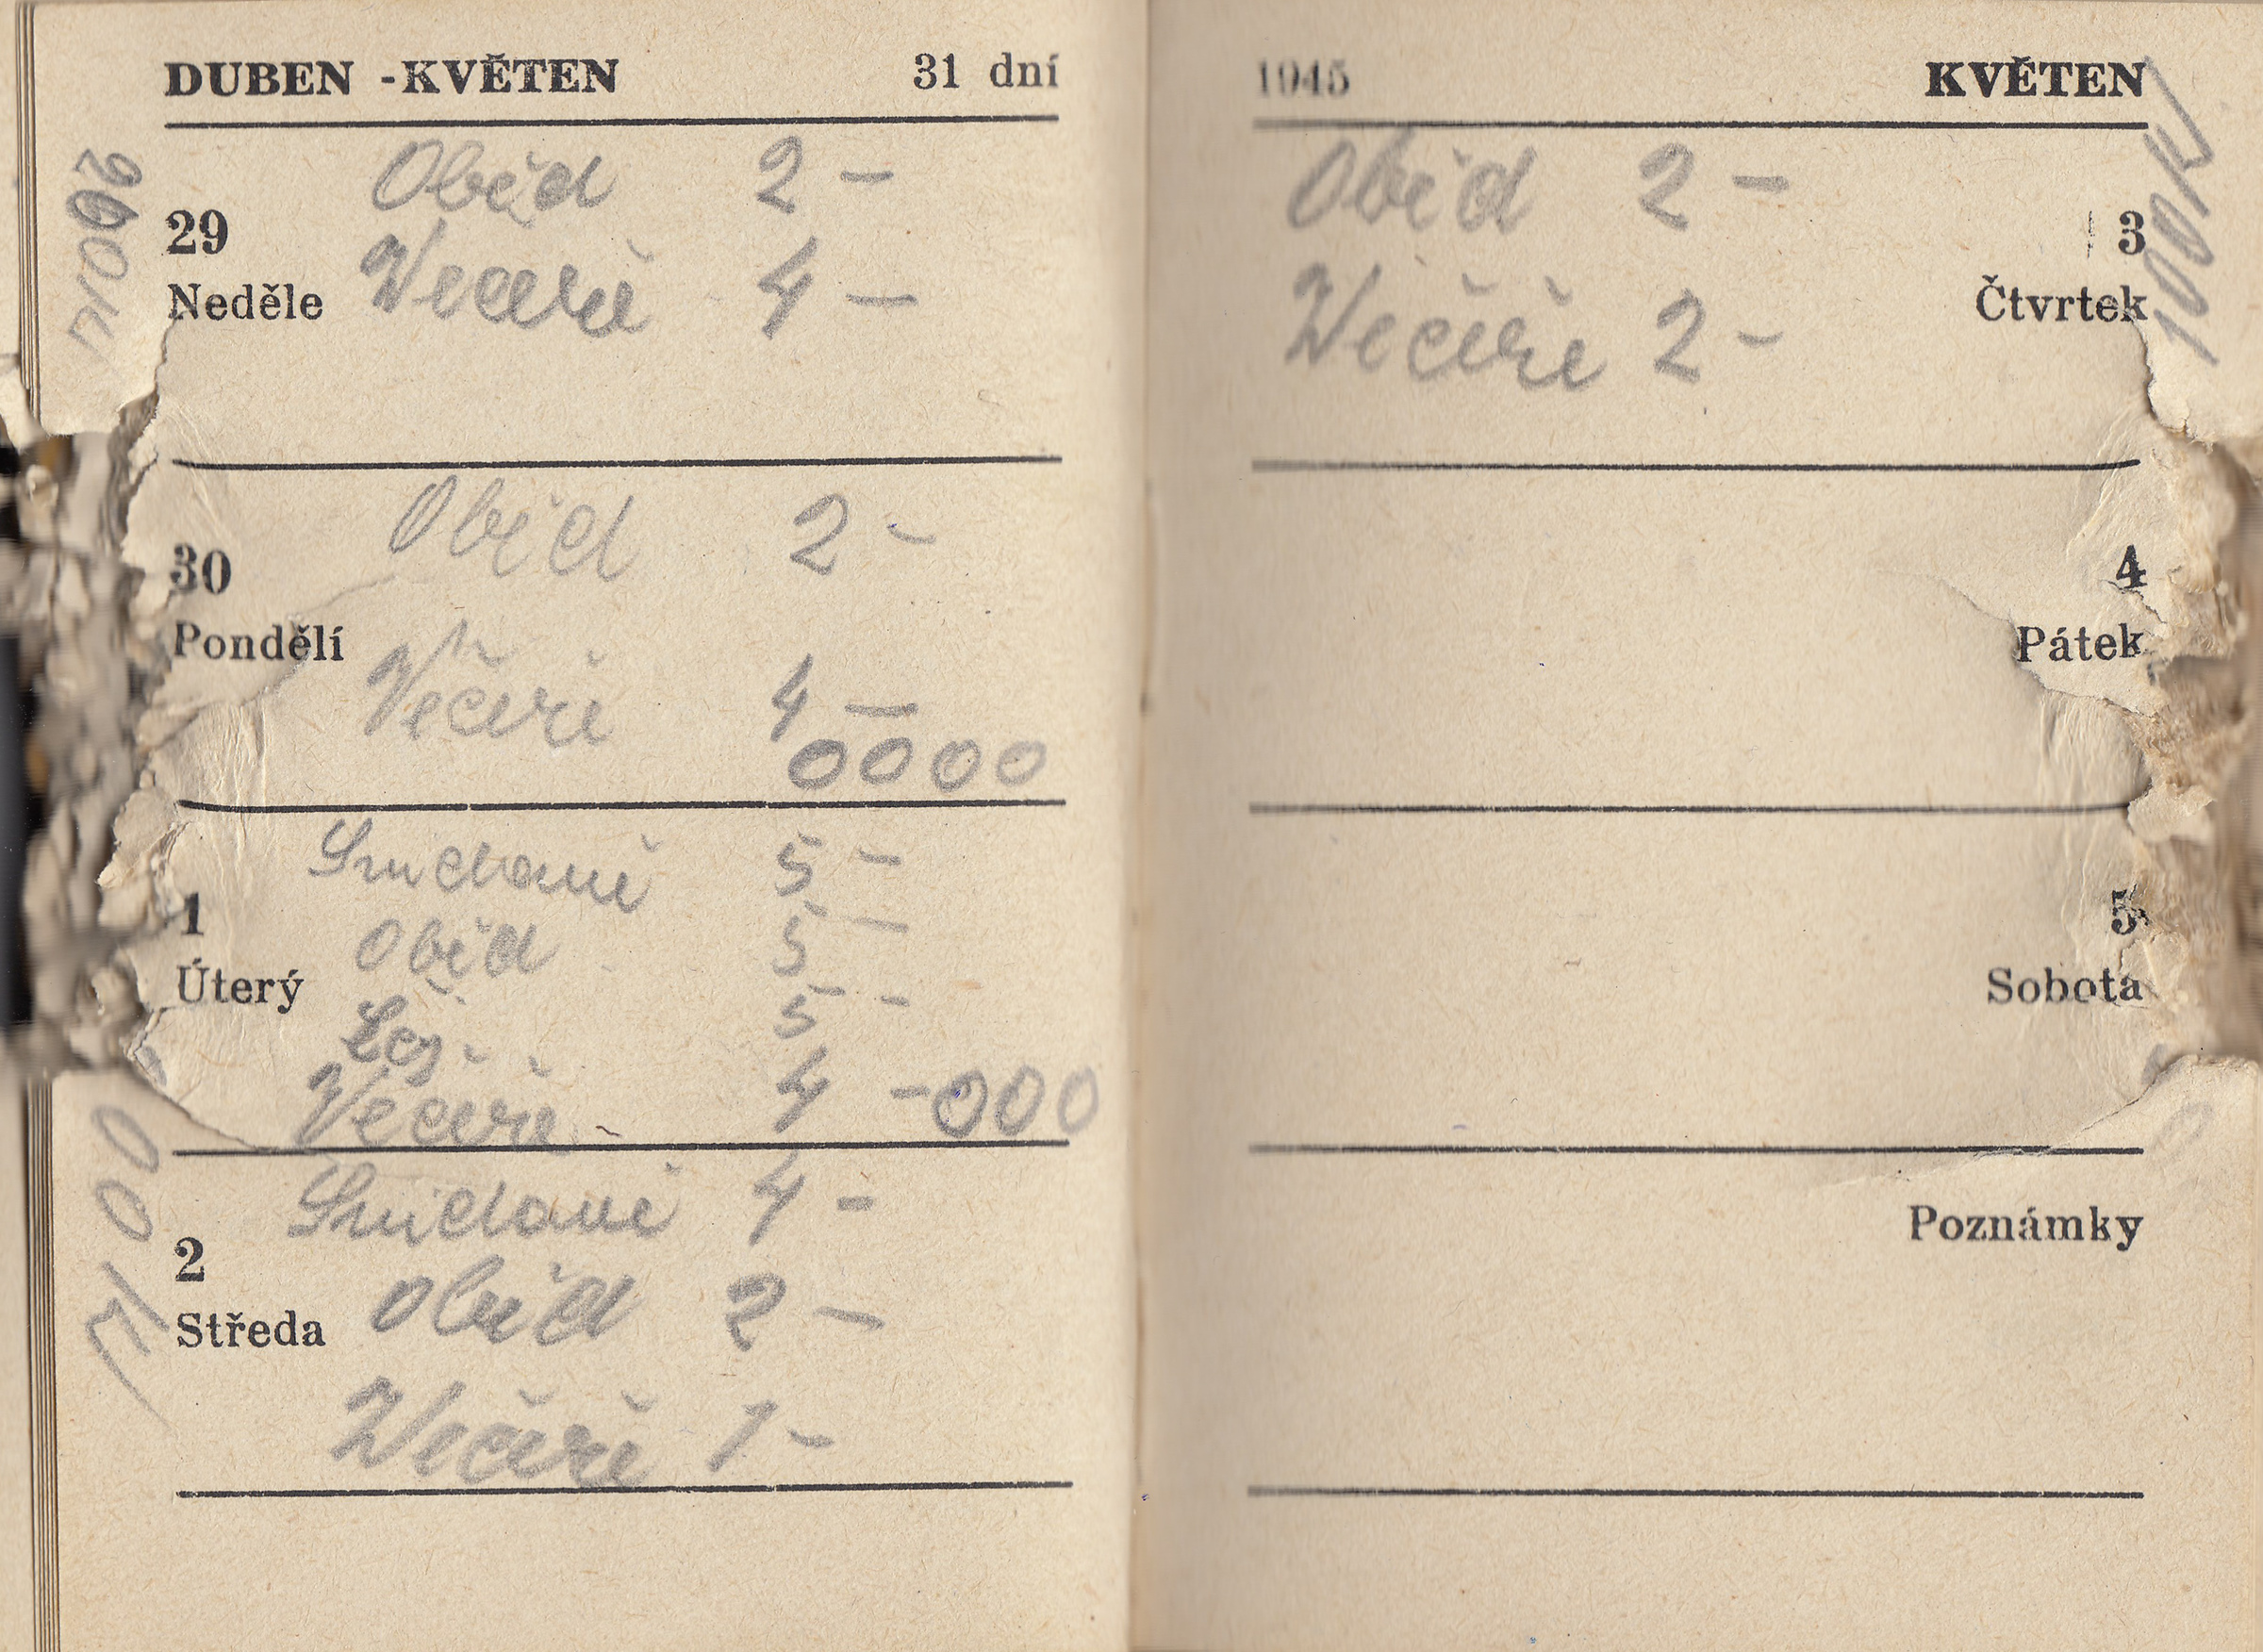 DUBEN - KVĚTEN 31 dní
Oběd 2 –
29
Neděle Večeře 4 –
Oběd 2 –
30
Pondělí
Večeře 4 –
0000
Snídaně 5 –
1
Oběd 5 –
Úterý
5 –
Večeře 4 – 000
Snídaně 4 –
2
Oběd 2 –
Středa
Večeře 1 –
1945 KVĚTEN
Oběd 2 –
3
Čtvrtek
Večeře 2 –
100K
4
Pátek
5
Sobota
Poznámky